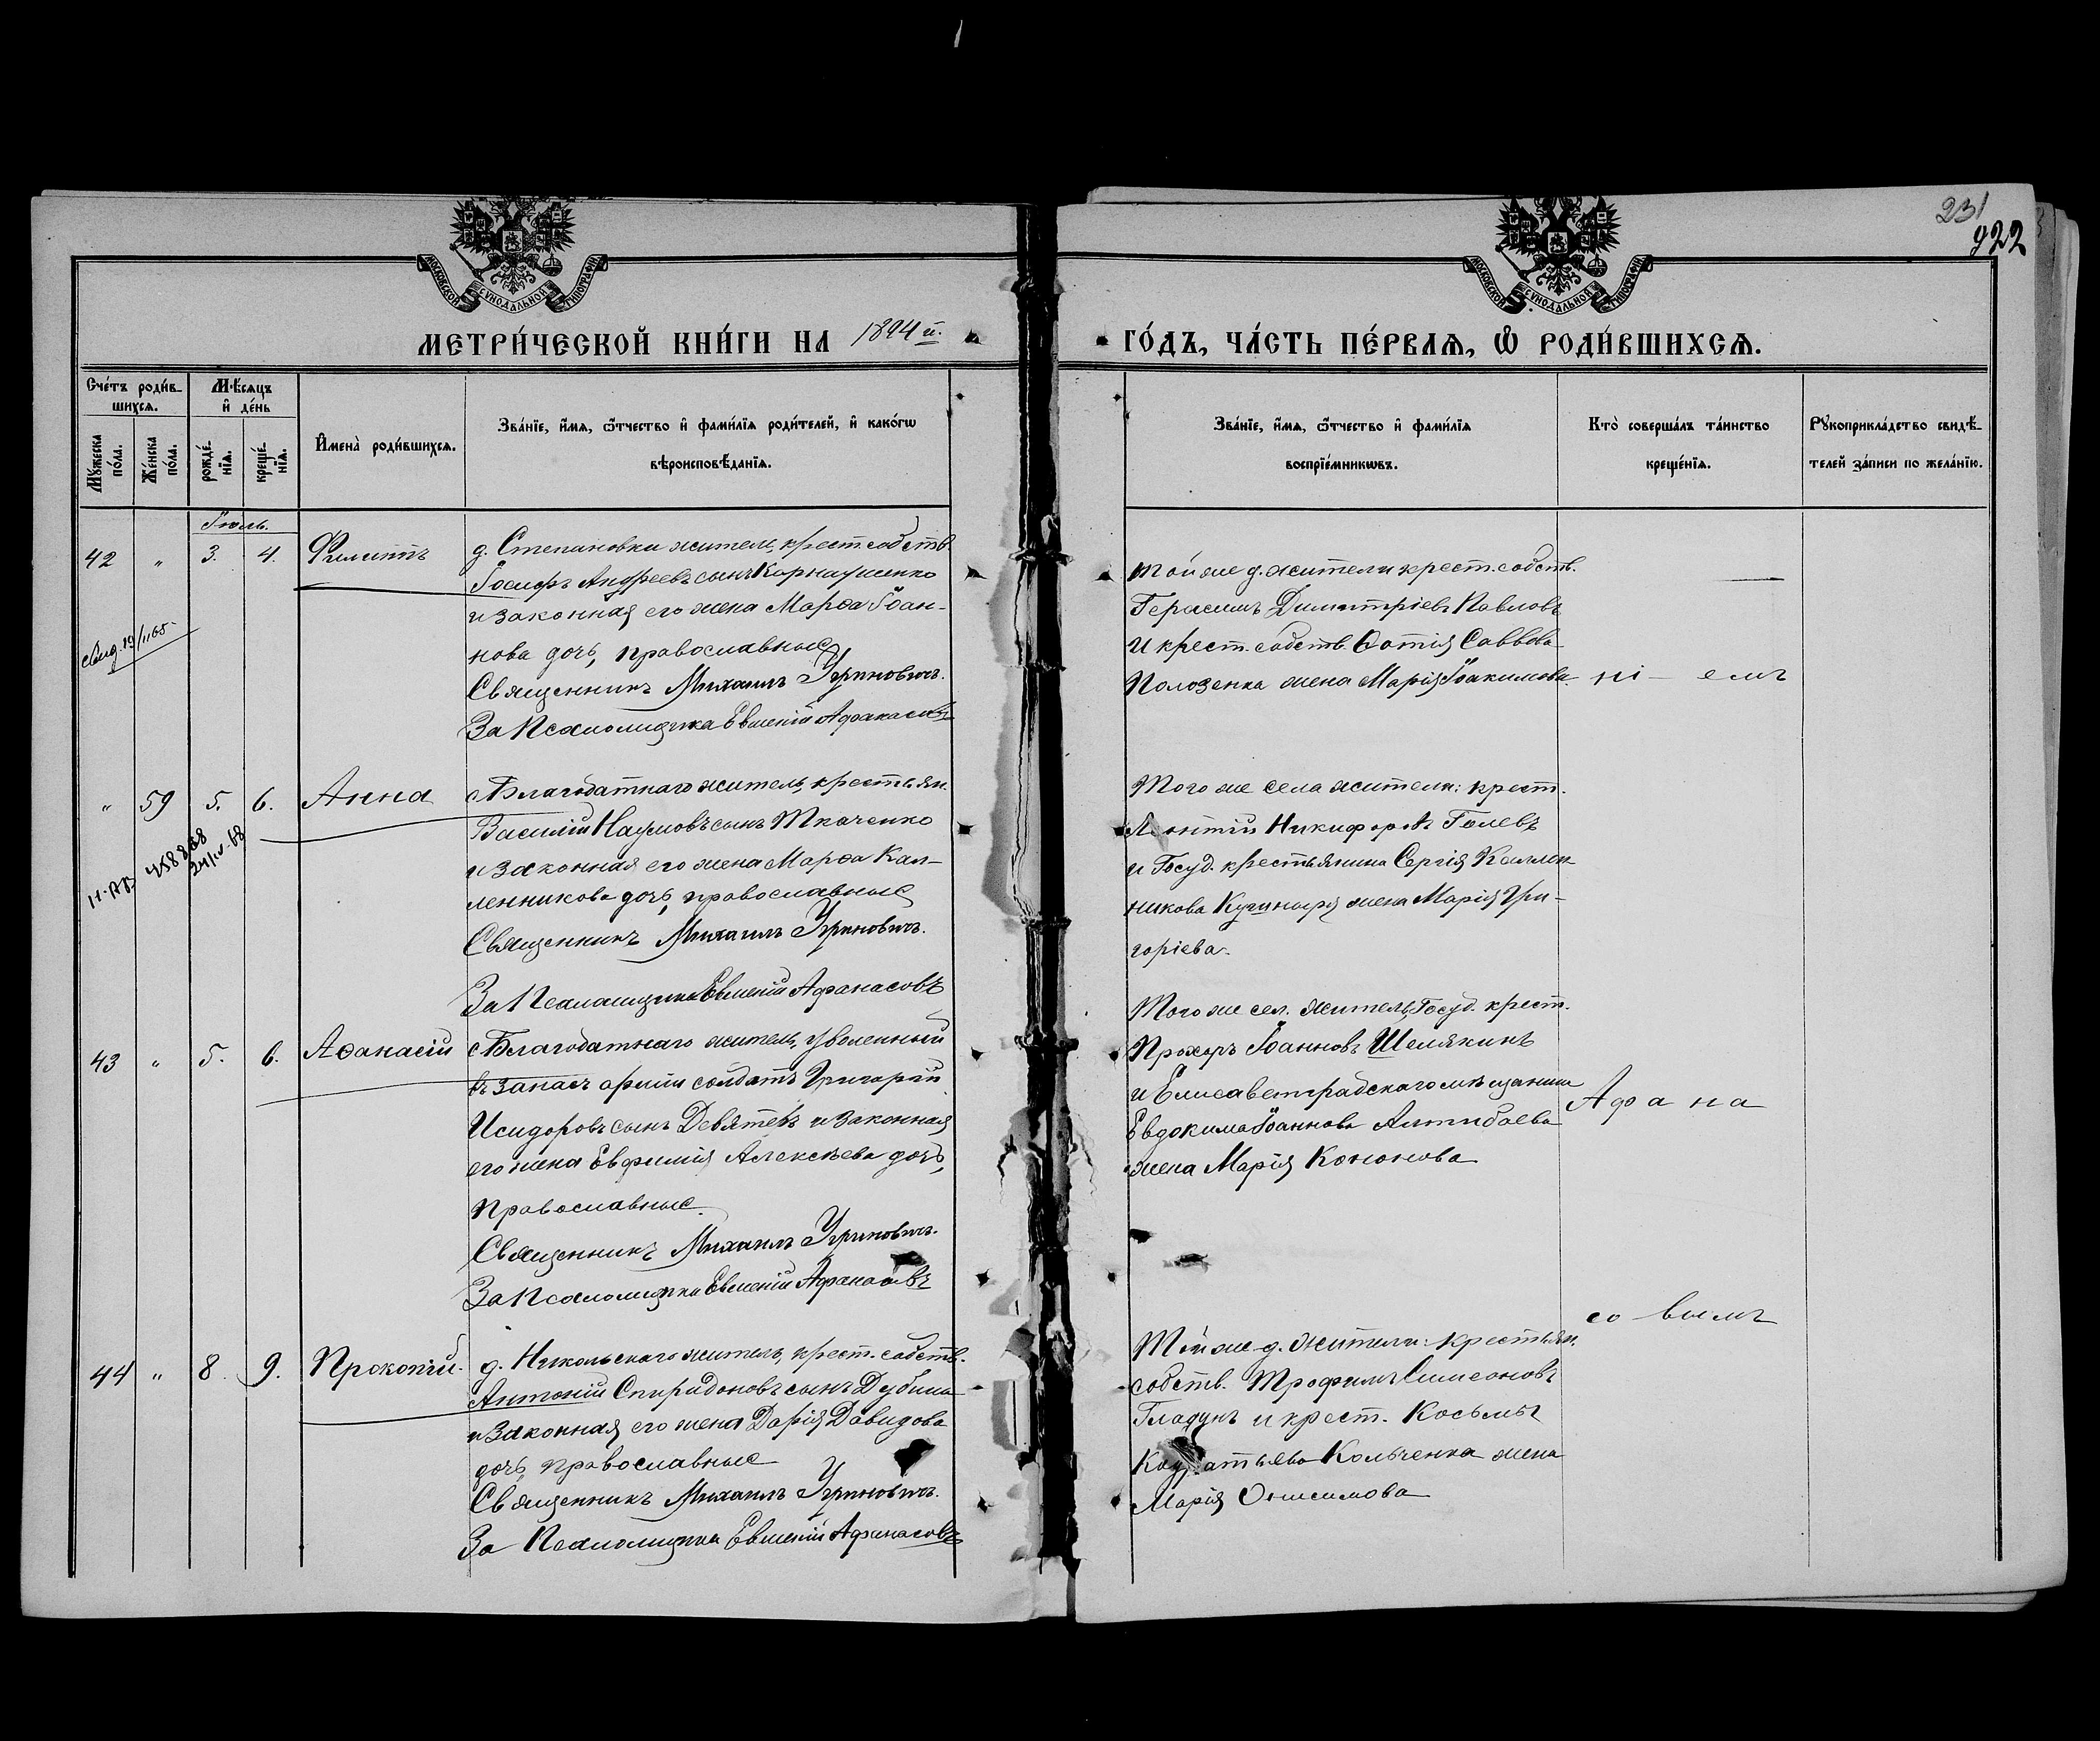 231
922
МОСКОВСКОЙ СУНОДАЛЬНОЙ ТИПОГРАФІИ
МОСКОВСКОЙ СУНОДАЛЬНОЙ ТИПОГРАФІИ
МЕТРИ́ЧЕСКОЙ КНИ́ГИ НА 1894 й.
ГО́ДЪ, ЧА́СТЬ ПЕ́РВАѦ, Ѽ РОДИ́ВШИХСѦ.
Сче́тъ роди́вшихсѧ.
Мѣ́сѧцъ и҆ де́нь
Мꙋ́жеска по́ла.
Же́нска по́ла.
рожде́нїѧ.
креще́нїѧ.
И҆мена̀ роди́вшихсѧ.
Зва́нїе, и҆́мѧ, ѻ҆́тчество и҆ фами́лїѧ роди́телей, и҆ како́гѡ
вѣроисповѣ́данїѧ.
Зва́нїе, и҆́мѧ, ѻ҆́тчество и҆ фами́лїѧ
воспрїе́мникѡвъ.
Кто̀ соверша́лъ та́инство
креще́нїѧ.
Рꙋкоприкла́дство свидѣ́-
телей за́писи по жела́нїю.
Іюль.
42 " 3. 4. Филиппъ
д. Степановки житель, крест. собств.
Іосифъ Андреевъ сынъ Карнаушенко
и законная его жена Марѳа Іоан-
нова дочь, православные
Священникъ Михаилъ Угриновичъ.
За Псаломщика Евменій Афанасовъ
той же д. жители крест. собств.
Герасимъ Димитріевъ Павловъ
и крест. собств. Ѳотія Саввова
Полозенка жена Марія Іоакимова.
ні - емъ
" 59 5. 6. Анна
с. Благодатнаго житель, крестьян.
Василій Наумовъ сынъ Ткаченко
и законная его жена Марѳа Кал-
ленникова дочь, православные
Священникъ Михаилъ Угриновичъ.
За Псаломщика Евменій Афанасовъ
Того же села жители: крест.
Леонтій Никифоровъ Голевъ
и Госуд. крестьянина Сергія Каллен-
никова жена Марія Гри-
горіева.
43 " 5. 6. Аѳанасій
с. Благодатнаго житель, уволенный
въ запасъ арміи солдатъ Григорій
Исидоровъ сынъ Девятевъ и законная
его жена Евфимія Алексѣева дочь,
православные.
Священникъ Михаилъ Угриновичъ.
За Псаломщика Евменій Афанасовъ
Того же сел. житель, Госуд. крест.
Прохоръ Іоанновъ Шелякинъ
и Елисаветградскаго мѣщанина
Евдокима Іоаннова
жена Марія Кононова
Афана
совымъ
44 " 8. 9. Прокопій.
д. Никольскаго житель, крест. собств.
Антоній Спиридоновъ сынъ Дубина
и законная его жена Дарія Давидова
дочь, православные
Священникъ Михаилъ Угриновичъ.
За Псаломщика Евменій Афанасовъ
Той же д. жители: крестьян.
собств. Трофимъ Симеоновъ
Гладунъ и крест. Косьмы
Кольченка жена
Марія Онисимова